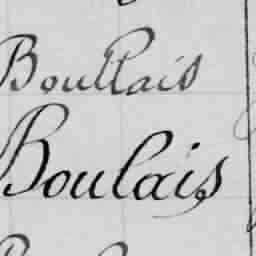 Boullais
Boulais